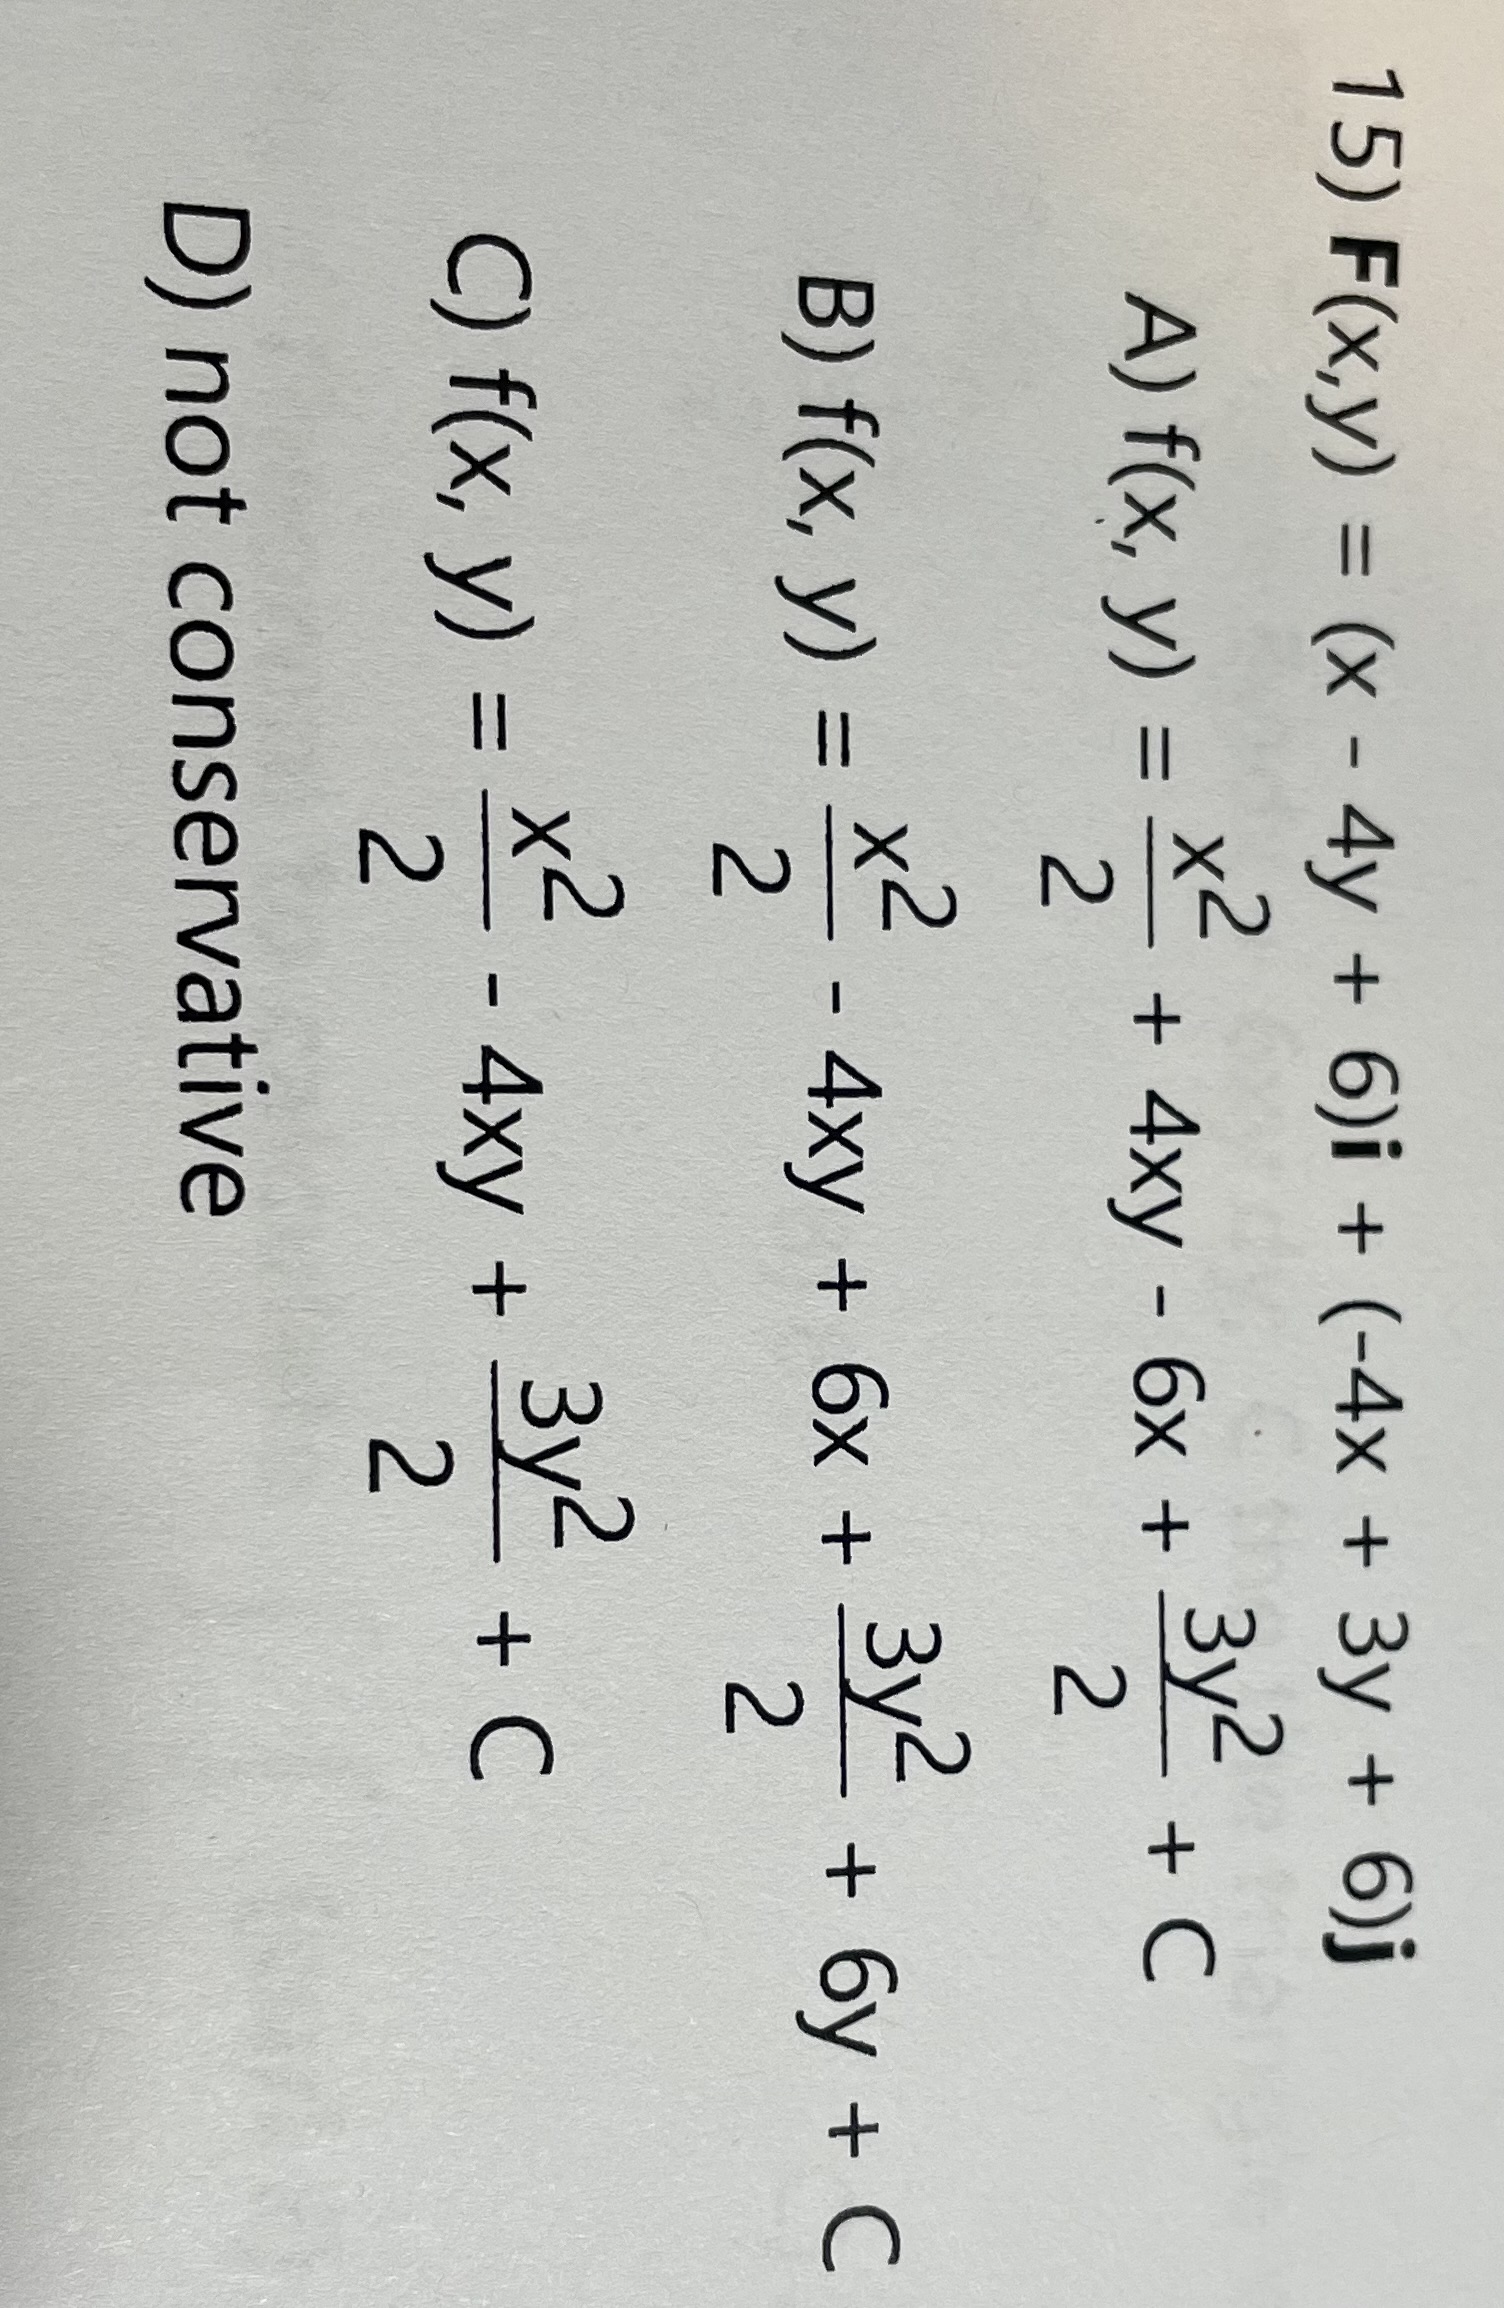 15) F(x,y) = (x - 4y + 6)i + (-4x + 3y + 6)j
A) f(x, y) = x²/2 + 4xy - 6x + 3y²/2 + C
B) f(x, y) = x²/2 - 4xy + 6x + 3y²/2 + 6y + C
C) f(x, y) = x²/2 - 4xy + 3y²/2 + C
D) not conservative